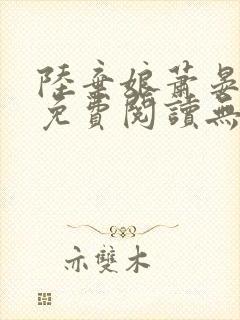 陸棄娘蕭晏
免費閱讀無
亦雙木